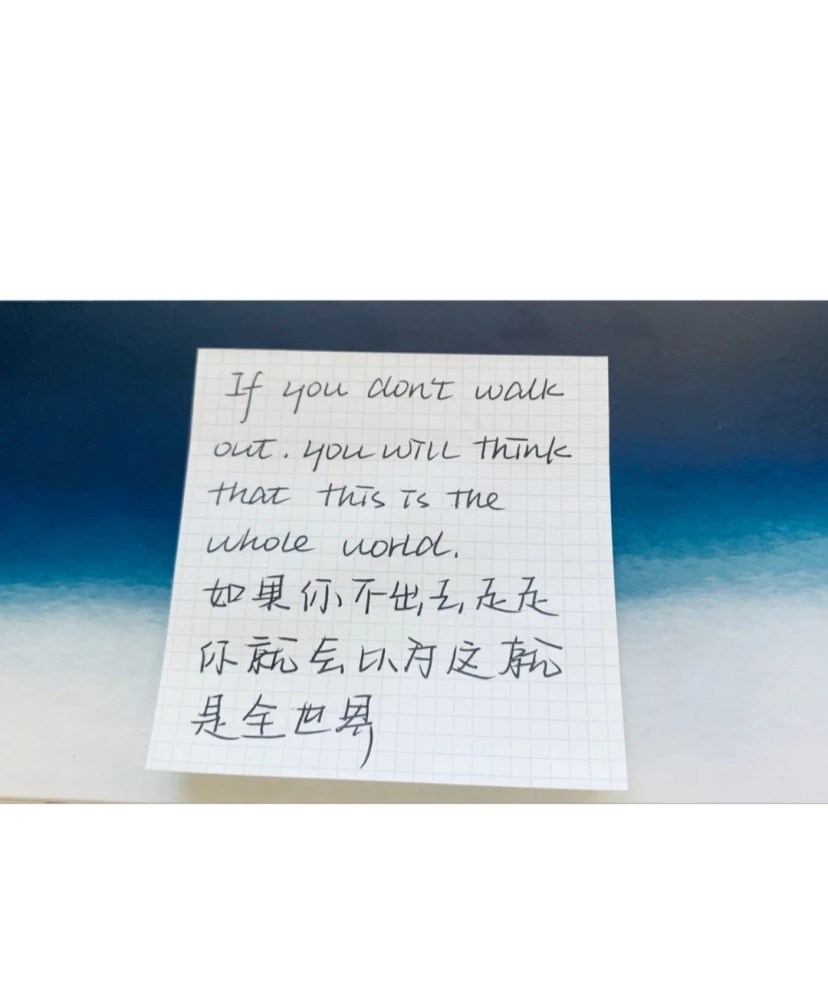 If you don't walk
out. you will think
that this is the
whole world.
如果你不出去走走
你就会以为这就
是全世界